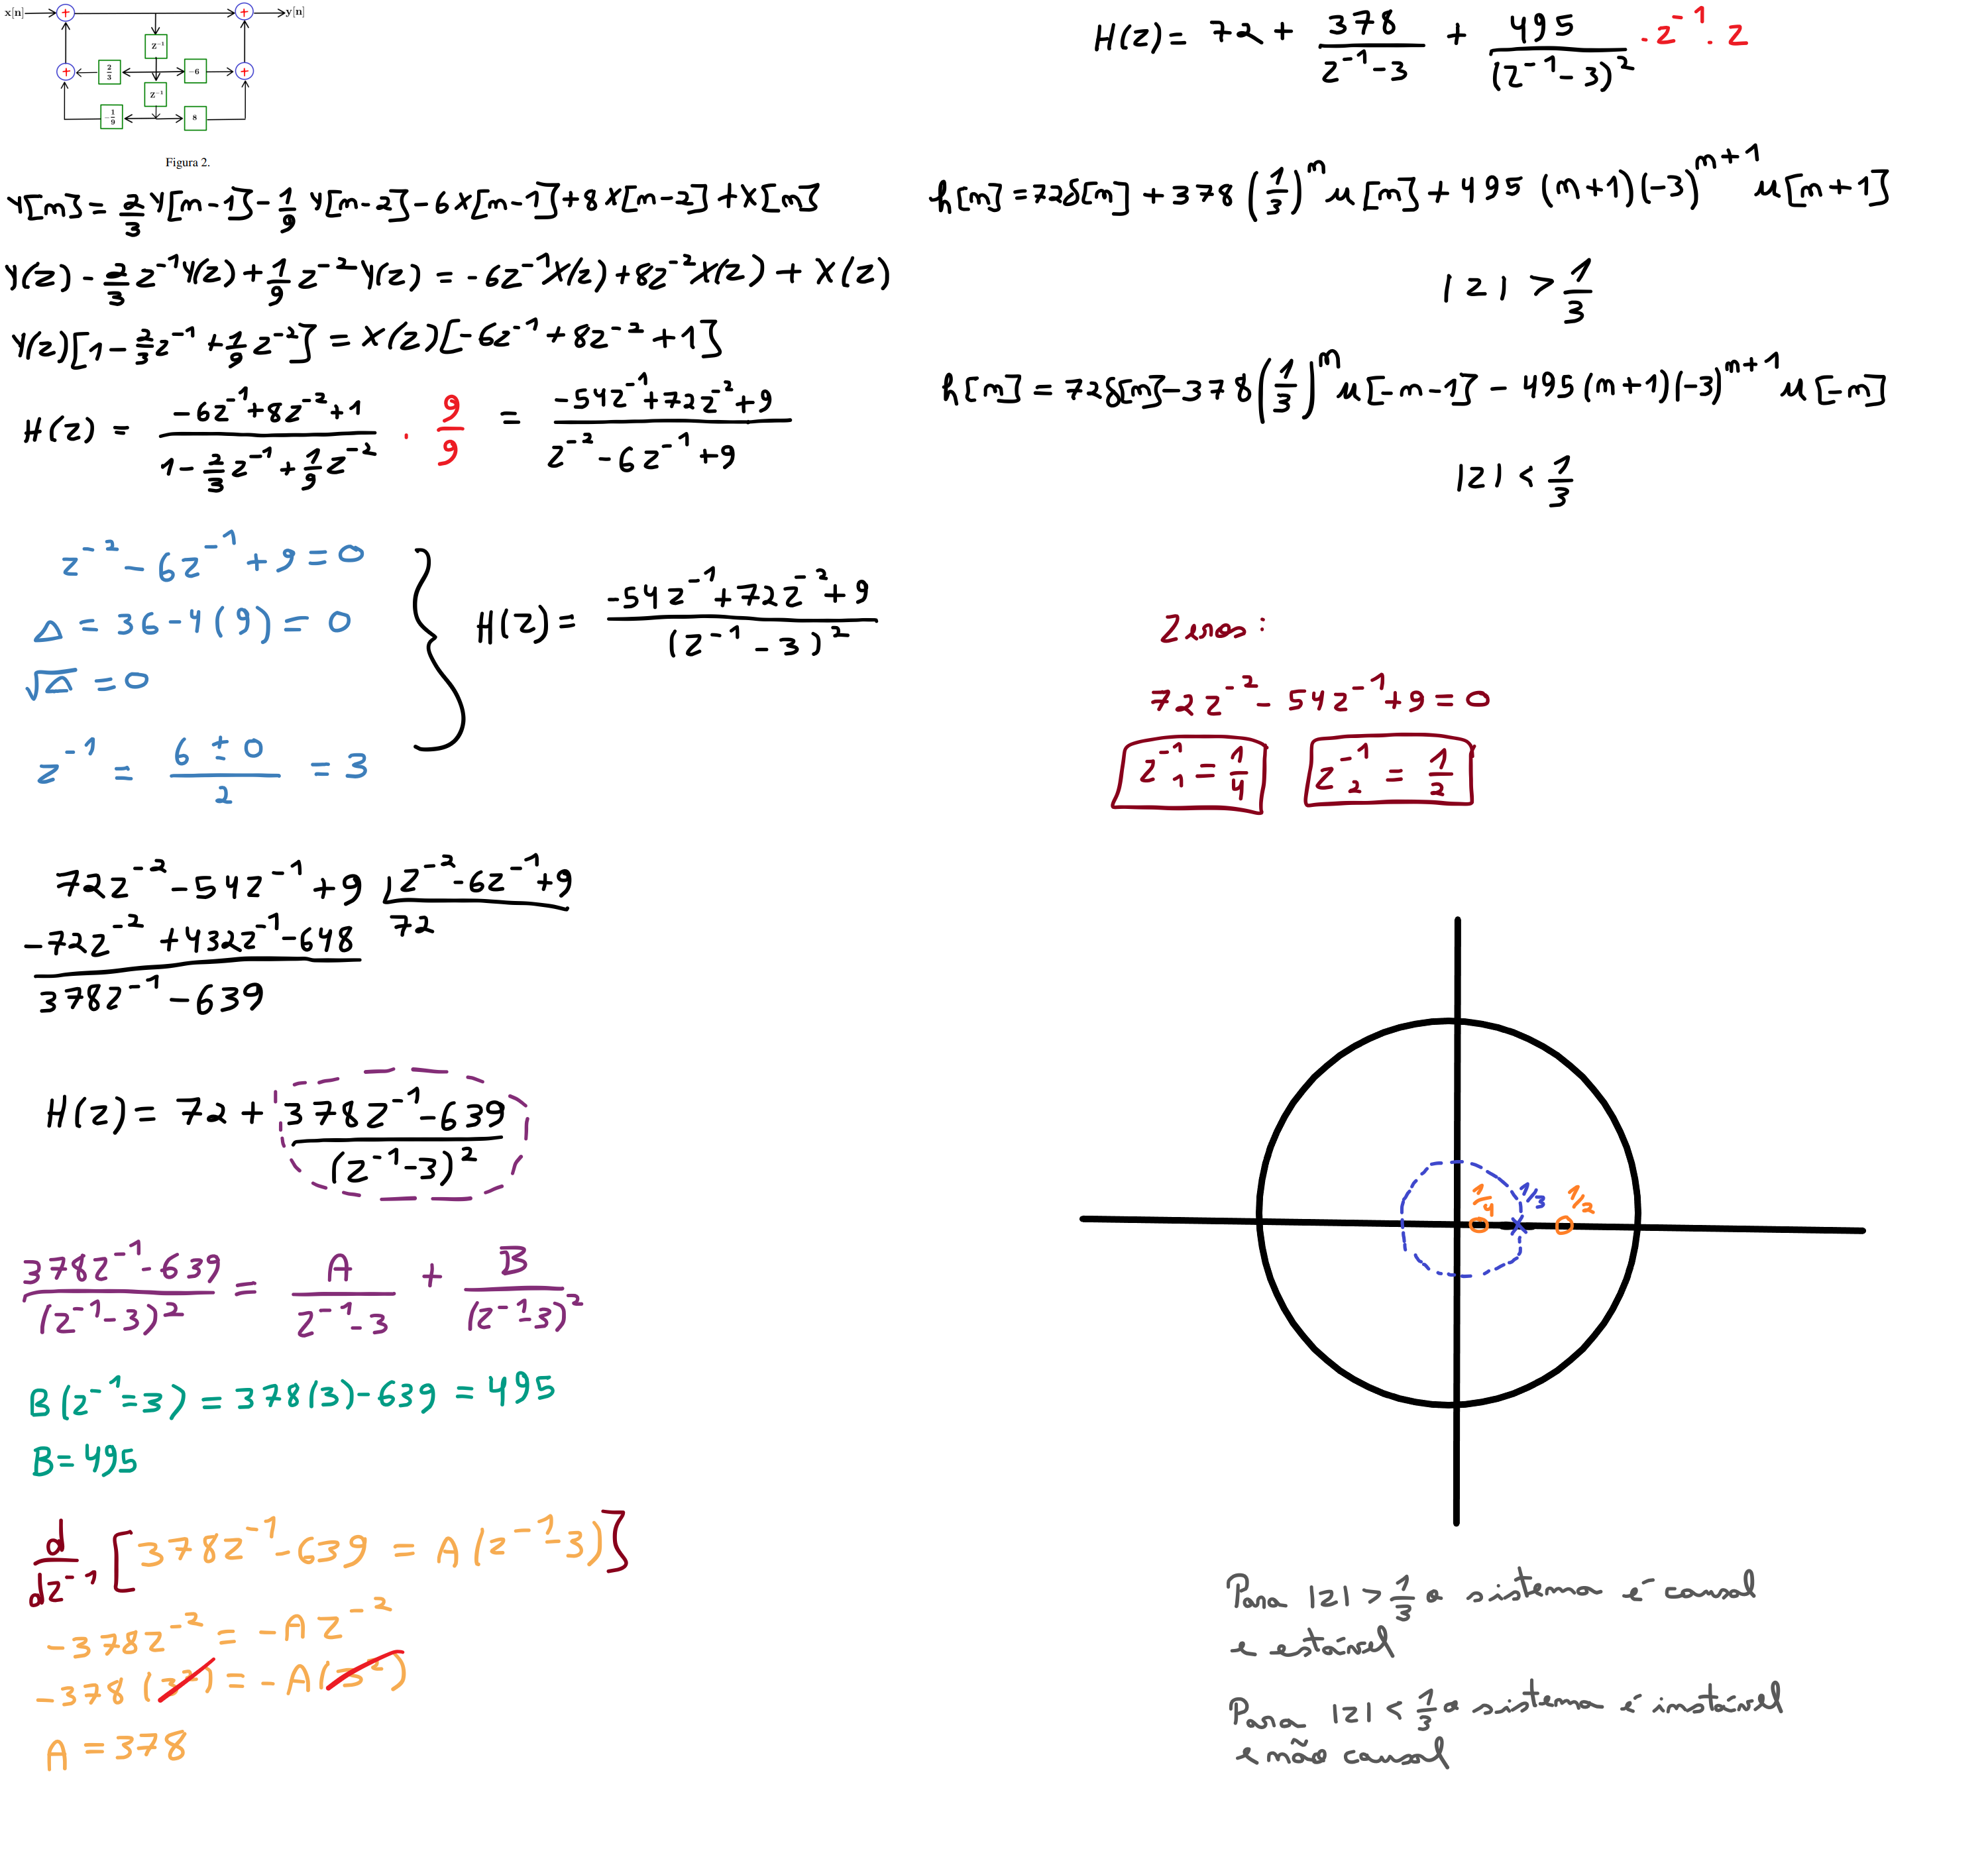 x[n] + + y[n]
z⁻¹
+ 2/3 -6 +
z⁻¹
-1/9 8
Figura 2.
y[n] = 2/3 y[n-1] - 1/9 y[n-2] - 6x[n-1] + 8x[n-2] + x[n]
Y(z) - 2/3 z⁻¹Y(z) + 1/9 z⁻²Y(z) = -6z⁻¹X(z) + 8z⁻²X(z) + X(z)
Y(z)[1 - 2/3 z⁻¹ + 1/9 z⁻²] = X(z)[-6z⁻¹ + 8z⁻² + 1]
H(z) = (-6z⁻¹ + 8z⁻² + 1)/(1 - 2/3 z⁻¹ + 1/9 z⁻²) · 9/9 = (-54z⁻¹ + 72z⁻² + 9)/(z⁻² - 6z⁻¹ + 9)
z⁻² - 6z⁻¹ + 9 = 0
Δ = 36 - 4(9) = 0
√Δ = 0
z⁻¹ = (6 ± 0)/2 = 3
H(z) = (-54z⁻¹ + 72z⁻² + 9)/(z⁻¹ - 3)²
72z⁻² - 54z⁻¹ + 9 | z⁻² - 6z⁻¹ + 9
-72z⁻² + 432z⁻¹ - 648 72
378z⁻¹ - 639
H(z) = 72 + (378z⁻¹ - 639)/(z⁻¹ - 3)²
(378z⁻¹ - 639)/(z⁻¹ - 3)² = A/(z⁻¹ - 3) + B/(z⁻¹ - 3)²
B(z⁻¹ = 3) = 378(3) - 639 = 495
B = 495
d/dz⁻¹ [378z⁻¹ - 639 = A(z⁻¹ - 3)]
-378z⁻² = -Az⁻²
-378(3²) = -A(3²)
A = 378
H(z) = 72 + 378/(z⁻¹ - 3) + 495/(z⁻¹ - 3)² · z⁻¹ · z
h[n] = 72δ[n] + 378(1/3)ⁿ u[n] + 495(n+1)(-3)ⁿ⁺¹ u[n+1]
|z| > 1/3
h[n] = 72δ[n] - 378(1/3)ⁿ u[-n-1] - 495(n+1)(-3)ⁿ⁺¹ u[-n]
|z| < 1/3
Zeros:
72z⁻² - 54z⁻¹ + 9 = 0
z₁⁻¹ = 1/4 z₂⁻¹ = 1/2
1/4 1/3 1/2
Para |z| > 1/3 o sistema é causal
e estável
Para |z| < 1/3 o sistema é instável
e não causal